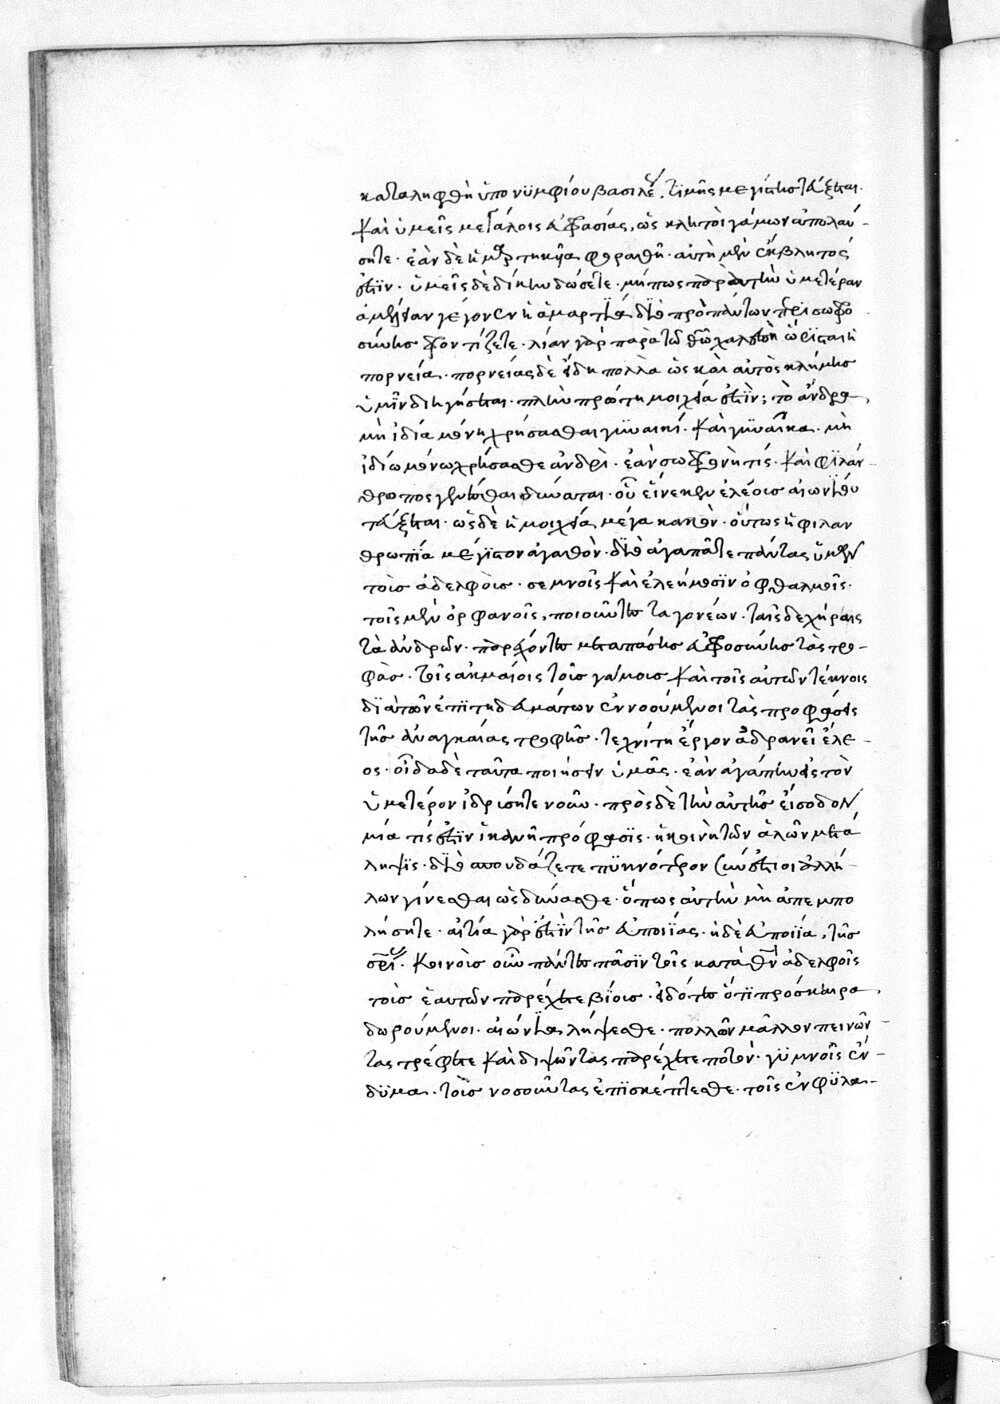 καταληφθῆ ὑπο νϋμφίου βασιλέως, τϊμῆς μεγίστης τεύξεται.
καὶ ὑμεῖς μεγάλοις εὐφασίας, ὡς κλητοὶ γάμων ἀπολαύ-
σητε. ἐὰν δὲ φθραθῆ. αὐτὴ μὲν ἔκβλητος
ἐστϊν. ὑμεῖς δὲ δίκην δώσετε. μήπως παρὰ τὴν ὑμετέραν
ἀμέλειαν γέγονεν ἡ ἁμαρτία. διὸ πρὸ πάντων περὶ σωφρο
σύνης φροντίζετε. λίαν γὰρ παρὰ τῶ θεῶ χαλεπὴ ὥρϊσται ἡ
πορνεία. πορνείας δὲ εἴδη πολλὰ ὡς καὶ αὐτὸς κλήμης
ὑμῖν διηγήσεται. πλὴν πρώτη μοιχεία ἐστϊν; τὸ ἄνδρα
μὴ ἰδία μόνη χρήσασθαι γυναικί. καὶ γϋναῖκα. μὴ
ἰδίω μόνω χρήσασθαι ἀνδρὶ. ἐὰν σωφρονῆ τίς. καὶ φϊλάν-
θροπος γενέσθαι δύναται. οὗ εἵνεκεν ἐλέους αἰωνΐου
τεύξεται. ὡς δὲ ἡ μοιχεία μέγα κακὸν. οὕτως ἡ φιλαν
θρωπία μέγϊστον ἀγαθὸν. διὸ ἀγαπᾶτε πάντας ὑμῶν
τοὺς ἀδελφοὺς. σεμνοῖς καὶ ἐλεήμοσϊν ὀφθαλμοῖς.
τοῖς μὲν ὀρφανοῖς, ποιοῦντες τὰ γονέων. ταῖς δὲ χήραις
τὰ ἀνδρῶν. παρέχοντες μετὰ πάσης εὐφροσύνης τὰς τρο-
φὰς. τοῖς ἀκμαίοις τοὺς γάμους καὶ τοῖς αὐτῶν τέκνοις
δϊὰ τῶν ἐπϊτηδευμάτων ἐννοούμενοι τὰς προφάσεις
τῆς ἀναγκαίας τροφῆς. τεχνίτη ἔργον ἀδρανεῖ ἔλε-
ος. οἶδα δὲ ταῦτα ποιήσειν ὑμᾶς. ἐὰν ἀγάπην εἰς τὸν
ὑμετέρον ἱδρύσητε νοῦν. πρὸς δὲ τὴν αὐτῆς εἴσοδον
μία τίς ἐστϊν ἱκανὴ πρόφασϊς. ἡ κοινὴ τῶν ἁλῶν μετά
ληψϊς. διὸ σπουδάζετε πϋκνότερον συνέστιοι ἀλλή-
λων γίνεσθαι ὡς δύνασθε. ὅπως αὐτὴν μὴ ἀπεμπο
λήσητε. αἰτία γὰρ ἐστϊν τῆς εὐποιΐας. ἡ δὲ εὐποιΐα, τῆς
σωτηρίας. κοινοὺς οὖν πάντες πᾶσϊν τοῖς κατὰ θεὸν ἀδελφοῖς
τοὺς ἑαυτῶν παρέχετε βΐους. εἰδότες ὅτϊ πρόσκαιρα
δωρούμενοι. αἰώνια λήψεσθε. πολλῶ μᾶλλον πεινῶν-
τας τρέφετε καὶ διψῶντας παρέχετε ποτόν. γϋμνοῖς ἔν-
δϋμα. τοὺς νοσοῦντας ἐπϊσκέπτεσθε. τοῖς ἐν φϋλα-